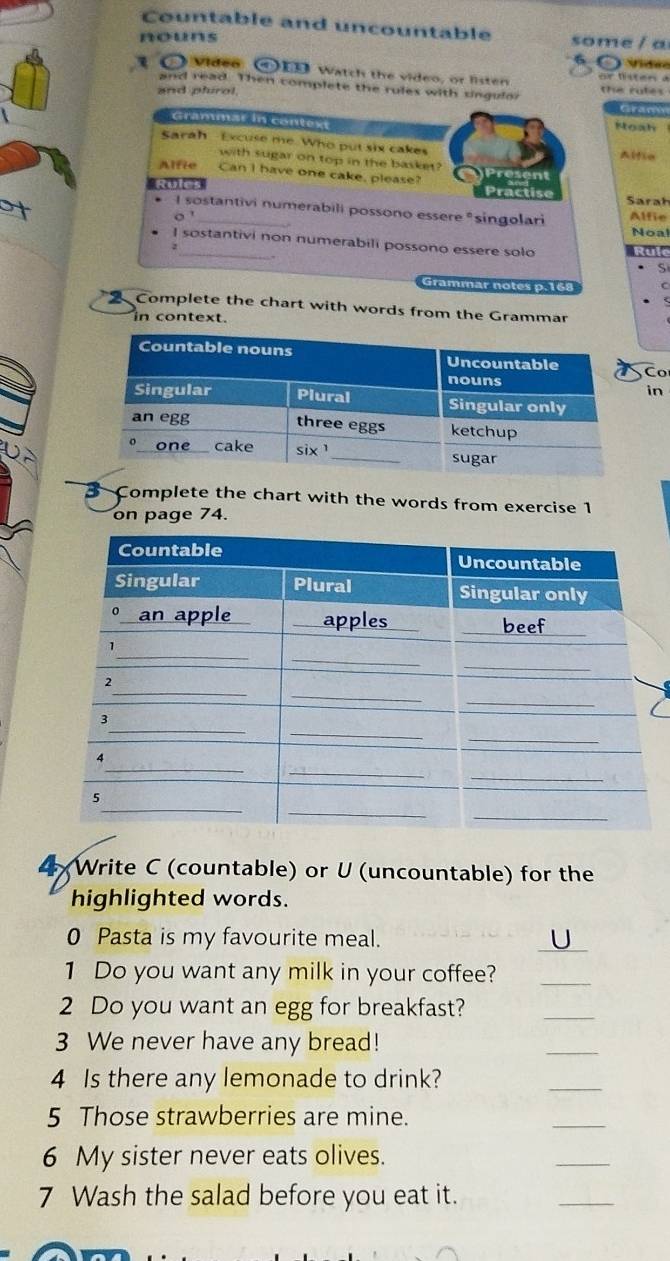 Countable and uncountable
nouns
1 Video Watch the video, or listen
and read. Then complete the rules with singular
and plural.
Grammar in context
Sarah Excuse me. Who put six cakes
with sugar on top in the basket?
Alfie Can I have one cake, please?
Present
and
Practise
Rules
• I sostantivi numerabili possono essere ⁰singolari
o ¹________
• I sostantivi non numerabili possono essere solo
²________.
Grammar notes p.168
2 Complete the chart with words from the Grammar
in context.
Countable nouns Uncountable
nouns
Singular Plural Singular only
an egg three eggs ketchup
⁰ one cake six ¹________ sugar
3 Complete the chart with the words from exercise 1
on page 74.
Countable Uncountable
Singular Plural Singular only
⁰ an apple apples beef
1
2
3
4
5
4 Write C (countable) or U (uncountable) for the
highlighted words.
0 Pasta is my favourite meal. U
1 Do you want any milk in your coffee? ____
2 Do you want an egg for breakfast? ____
3 We never have any bread! ____
4 Is there any lemonade to drink? ____
5 Those strawberries are mine. ____
6 My sister never eats olives. ____
7 Wash the salad before you eat it. ____
some / a
6 Video
or listen a
the rules
Gramm
Noah
Alfie
Sarah
Alfie
Noah
Rule
• S
7 Co
in